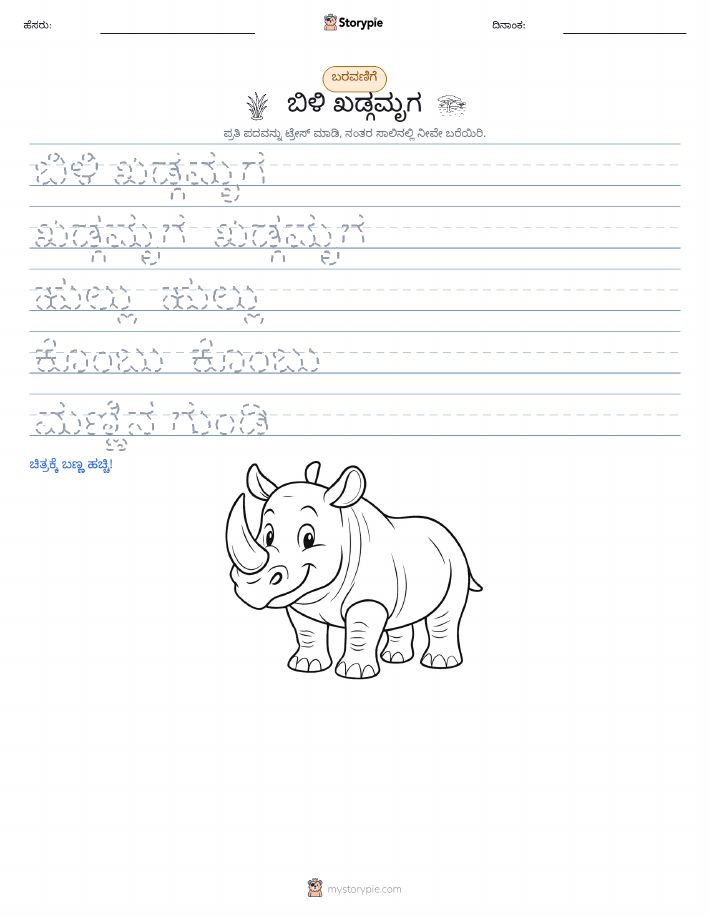 ಹೆಸರು: Storypie ದಿನಾಂಕ:
ಬರವಣಿಗೆ
ಬಿಳಿ ಖಡ್ಗಮೃಗ
ಪ್ರತಿ ಪದವನ್ನು ಟ್ರೇಸ್ ಮಾಡಿ, ನಂತರ ಸಾಲಿನಲ್ಲಿ ನೀವೇ ಬರೆಯಿರಿ.
ಬಿಳಿ ಖಡ್ಗಮೃಗ
ಖಡ್ಗಮೃಗ ಖಡ್ಗಮೃಗ
ಹುಲ್ಲು ಹುಲ್ಲು
ಕೊಂಬು ಕೊಂಬು
ಮಣ್ಣಿನ ಗುಂಡಿ
ಚಿತ್ರಕ್ಕೆ ಬಣ್ಣ ಹಚ್ಚಿ!
mystorypie.com